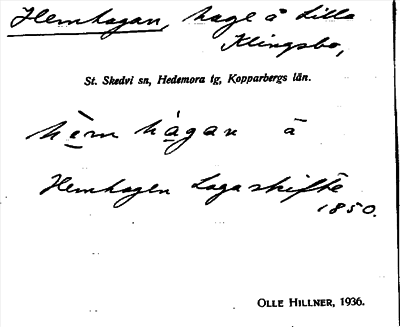 Hemhagan, hage å Lilla
Klingsbo,
St. Skedvi sn, Hedemora tg, Kopparbergs län.
hèm hàgan ā
Hemhagen Lagaskifte
1850.
OLLE HILLNER, 1936.